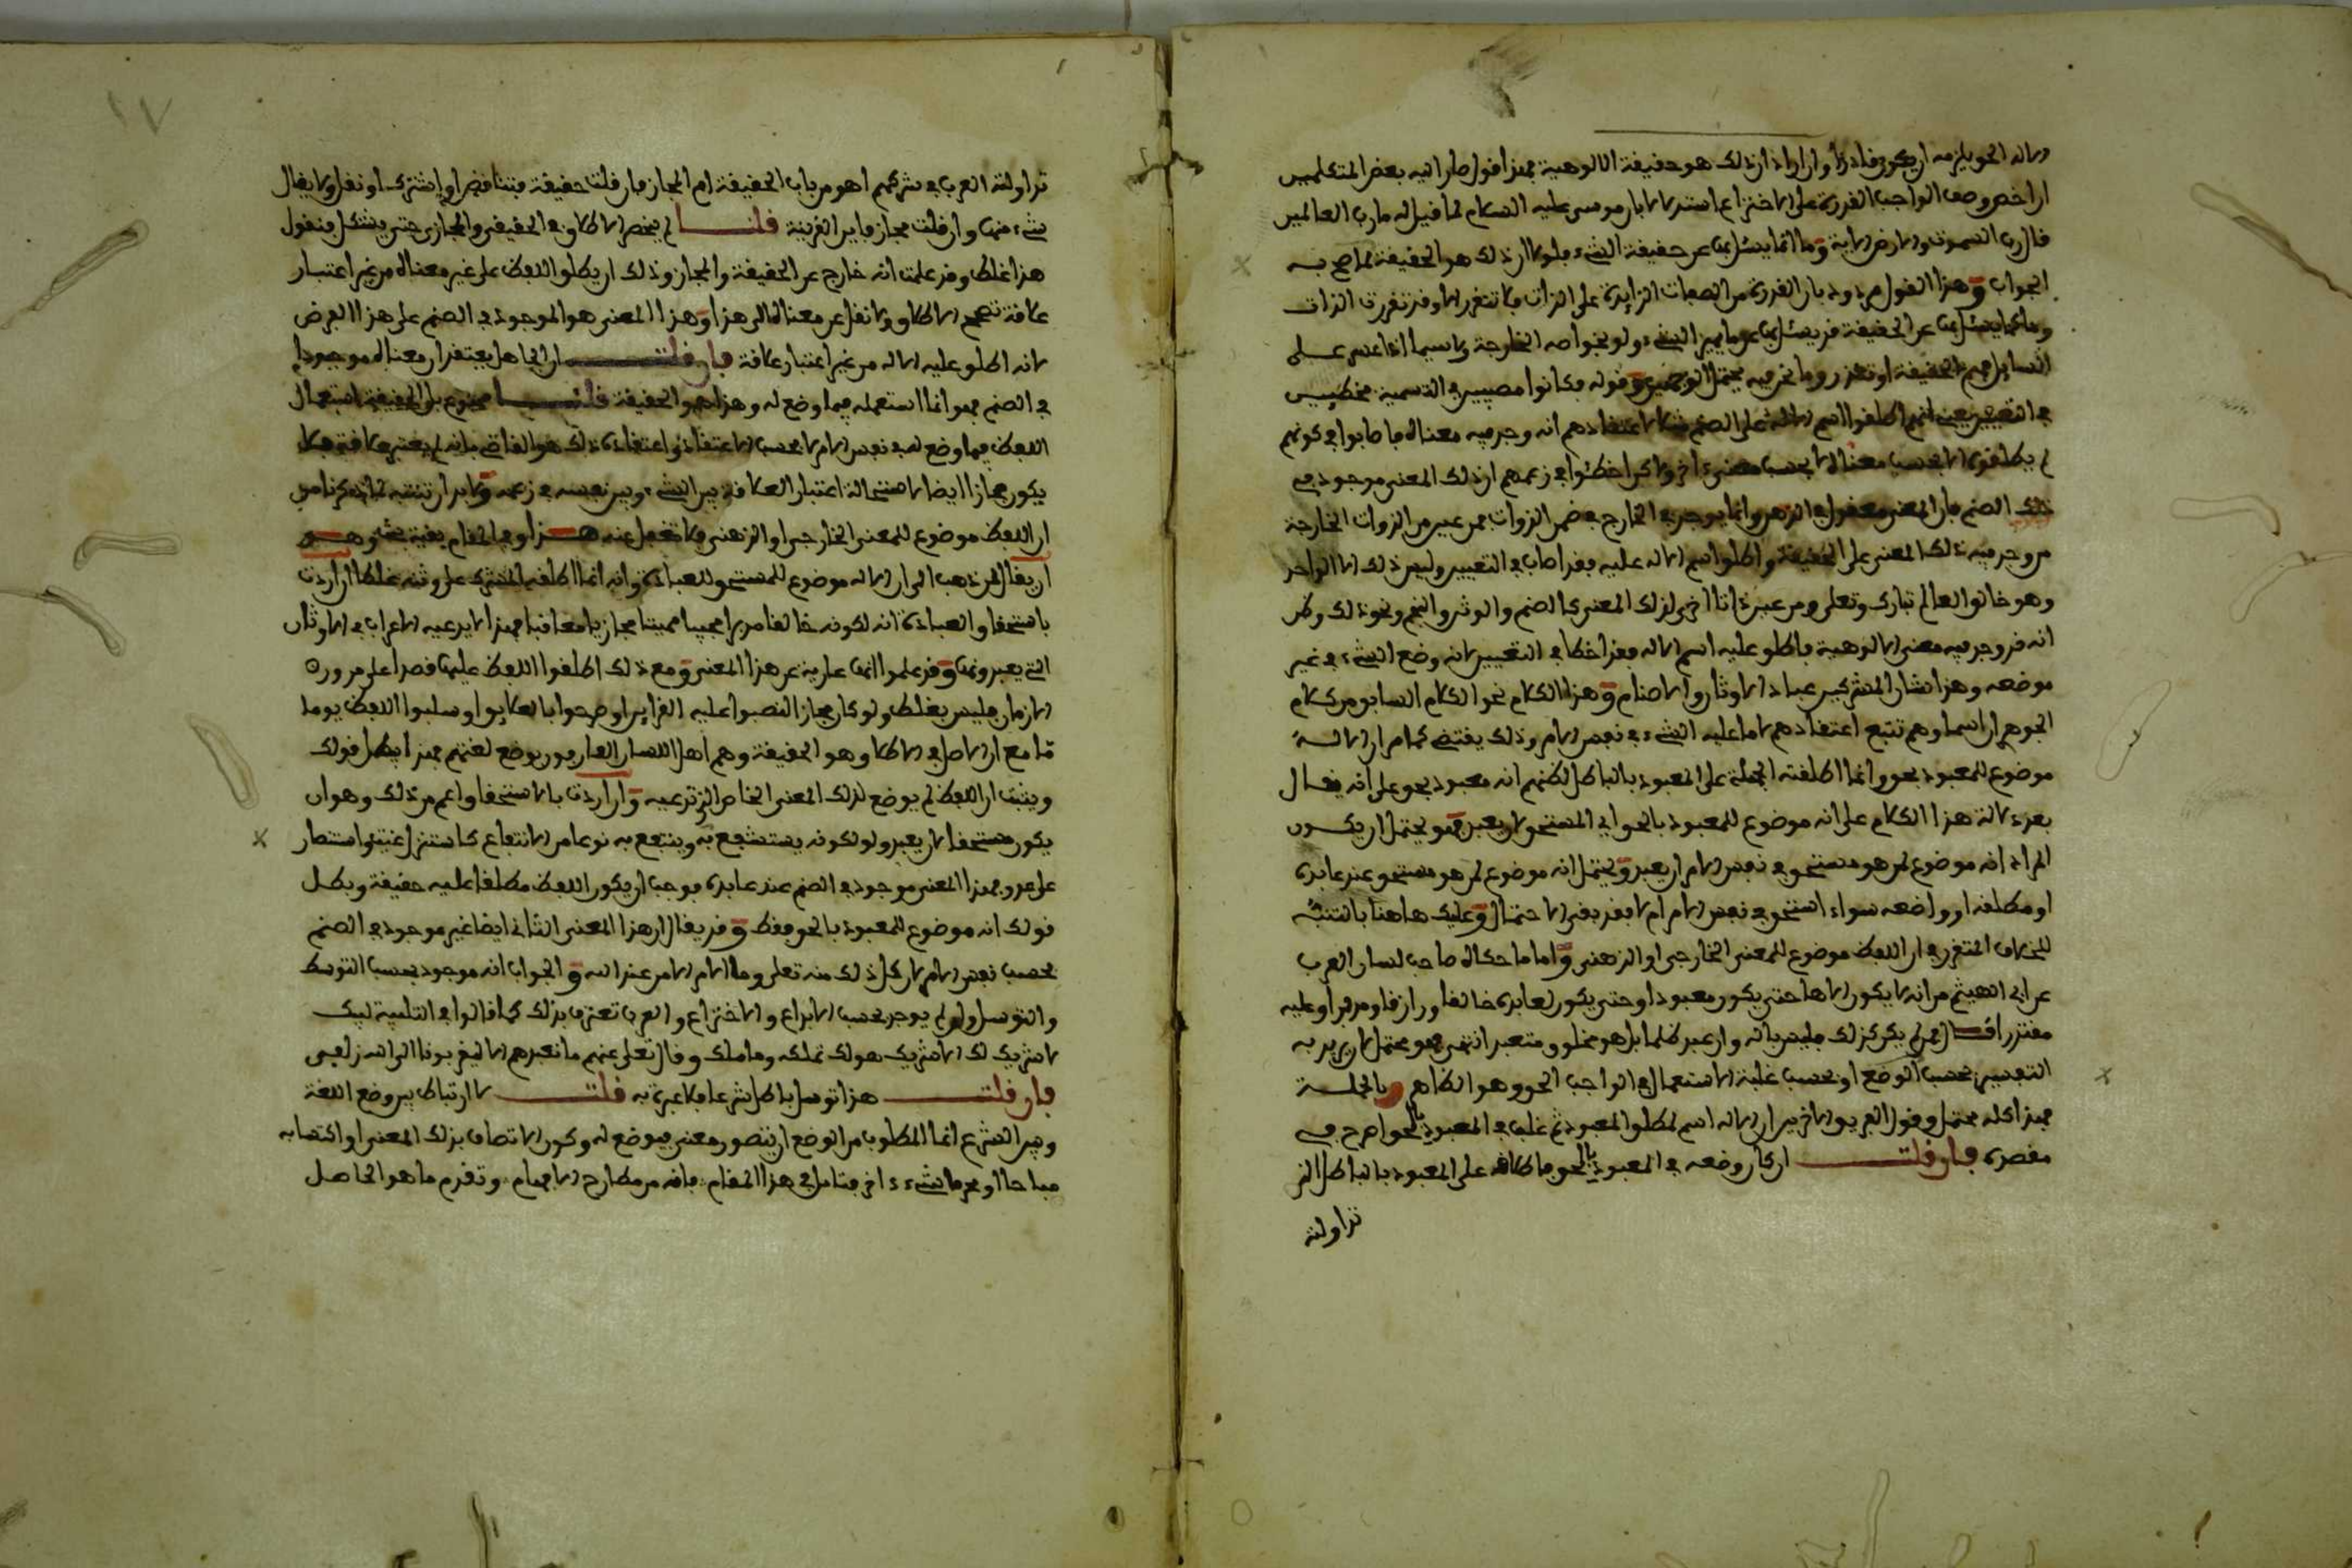 الاله الحق يلزمه ان يكون قادرا وان اراد ان ذلك هو حقيقة الالوهية فهذا قول صار اليه بعض المتكلمين
ان اخص وصف الواجب القدرة على الاختراع استدلالا بان موسى عليه السلام لما قيل له ما رب العالمين
قال رب السموت والارض الاية وما انما يسئل بها عن حقيقة الشيء فلولا ان ذلك هو الحقيقة لما صح به
الجواب وهذا القول مردود بان القدرة من الصفات الزايدة على الذات فلا تتقرر الا وقد تقررت الذات
وما كما يسئل بها عن الحقيقة قد يسئل بها عن ما يميز الشيء ولو بخواصه الخارجة ولا سيما اذا عسر على
السايل فهم الحقيقة او تعذر وما نحن فيه يحتمل الوجهين وقوله وكانوا مصيبين في التسمية مخطيين
في التعيين يعني انهم اطلقوا اسم الاله على الصنم مثلا لاعتقادهم انه وجد فيه معناه فاصابوا في كونهم
لم يطلقوه الا بحسب معناه لا بحسب معنى اخر ولاكن اخطئوا في زعمهم ان ذلك المعنى موجود في
ذلك الصنم فان المعنى معقول في الذهن وانما يوجد في الخارج في ضمن الذوات فمن عين من الذوات الخارجة
من وجد فيه ذلك المعنى على الحقيقة واطلق اسم الاله عليه فقد اصاب في التعيين وليس ذلك الا الواحد
وهو خالق العالم تبارك وتعلى ومن عين ذاتا اخرى لذلك المعنى كالصنم والوثن والنجم ونحو ذلك وظن
انه قد وجد فيه معنى الالوهية فاطلق عليه اسم الاله فقد اخطا في التعيين لانه وضع الشيء في غير
موضعه وهذا شان المشركين عباد الاوثان والاصنام وهذا الكلام نحو الكلام السابق من كلام
الجوهري ان اسماءهم تتبع اعتقادهم لا ما عليه الشيء في نفس الامر وذلك يقتضي كما مر ان الاله
موضوع للمعبود بحق وانما اطلقته الجهلة على المعبود بالباطل لظنهم انه معبود بحق على انه يقال
بعد دلالة هذا الكلام على انه موضوع للمعبود بالحق اي المستحق لان يعبد فهو يحتمل ان يكون
المراد انه موضوع لمن هو مستحق في نفس الامر ان يعبد ويحتمل انه موضوع لمن هو مستحق عند عابده
او مطلقه او واضعه سواء استحق في نفس الامر ام لا فقد بقي الاحتمال وعليك هاهنا بالتنبه
للخلاف المتقرر في ان اللفظ موضوع للمعنى الخارجي او الذهني واما ما حكاه صاحب لسان العرب
عن ابي الهيثم من انه لا يكون الاها حتى يكون معبودا وحتى يكون لعابده خالقا ورازقا ومدبرا وعليه
مقتدرا قال فمن لم يكن كذلك فليس باله وان عبد ظلما بل هو مخلوق ومتعبد انتهى فهو محتمل لان يريد به
التفسير بحسب الوضع او بحسب غلبة الاستعمال في الواجب الحق وهو الظاهر وبالجملة
فهذا كله محتمل وقول الفريق الاخر ان الاله اسم لمطلق المعبود ثم غلب في المعبود بالحق اصرح في
مقصده فان قلت ان كان وضعه في المعبود بالحق فاطلاقه على المعبود بالباطل الذي
تداولته
تداولته العرب في شركهم اهو من باب الحقيقة ام المجاز فان قلت حقيقة فتناقض او اشتراك او نقل ولا يقال
بشيء منها وان قلت مجاز فاين القرينة قلنا لم ينحصر الاطلاق في الحقيقي والمجازي حتى يشكل فنقول
هذا غلط وقد علمت انه خارج عن الحقيقة والمجاز وذلك ان يطلق اللفظ على غير معناه من غير اعتبار
علاقة تصحح الاطلاق ولا نقل عن معناه الى هذا وهذا المعنى هو الموجود في الصنم على هذا الفرض
لانه اطلق عليه الاله من غير اعتبار علاقة فان قلت ان الجاهل يعتقد ان معناه موجود
في الصنم فهو انما استعمله فيما وضع له وهذا هو الحقيقة قلنا ممنوع بل الحقيقة استعمال
اللفظ فيما وضع له في نفس الامر لا بحسب الاعتقاد واعتقاده ذلك هو القاضي بانه لم يعتبر علاقة فلا
يكون مجازا ايضا لاستحالة اعتبار العلاقة بين الشيء وبين نفسه في زعمه ولا بد ان تتنبه لما ذكرنا من
ان اللفظ موضوع للمعنى الخارجي او الذهني فلا تغفل عنه هذا وفي المقام بقية بحث وهو
ان يقال لمن ذهب الى ان الاله موضوع للمستحق للعبادة وانه انما اطلقه المشرك على وثنه غلطا ان اردت
باستحقاق العبادة انه لكونه خالقا مدبرا محييا مميتا مجازيا معاقبا فهذا لا يدعيه الاعراب في الاوثان
التي يعبدونها وقد علموا انها عارية عن هذا المعنى ومع ذلك اطلقوا اللفظ عليها قصدا على مرور
الازمان فليس بغلط ولو كان مجازا لنصبوا عليه القراين او صرحوا بالعلايق او سلبوا اللفظ يوما
ما مع ان الاصل في الاطلاق هو الحقيقة وهم اهل اللسان العارفون بوضع لغتهم فهذا يبطل قولك
ويثبت ان اللفظ لم يوضع لذلك المعنى الخاص الذي تدعيه وان اردت بالاستحقاق اعم من ذلك وهو ان
يكون مستحقا لان يعبد ولو لكونه يستشفع به وينتفع به نوعا من الانتفاع كاستنزال غيث واستنصار
على عدو فهذا المعنى موجود في الصنم عند عابده فوجب ان يكون اللفظ مطلقا عليه حقيقة وبطل
قولك انه موضوع للمعبود بالحق فقط وقد يقال ان هذا المعنى الثاني ايضا غير موجود في الصنم
بحسب نفس الامر لان كل ذلك منه تعلى وما الامر الا من عند الله والجواب انه موجود بحسب التوسط
والتوسل ولو لم يوجد بحسب الابداع والاختراع والعرب تعترف بذلك كما قالوا في التلبية لبيك
لا شريك لك الا شريك هو لك تملكه وما ملك وقال تعلى عنهم ما نعبدهم الا ليقربونا الى الله زلفى
فان قلت هذا توسل باطل شرعا فلا عبرة به قلت لا ارتباط بين وضع اللغة
وبين الشرع انما المطلوب من الوضع ان يتصور معنى فيوضع له وكون الاتصاف بذلك المعنى او اكتسابه
مباحا او محرما شيء اخر فتامل في هذا المقام فانه من مطارح الافهام وتقدم ما هو الحاصل